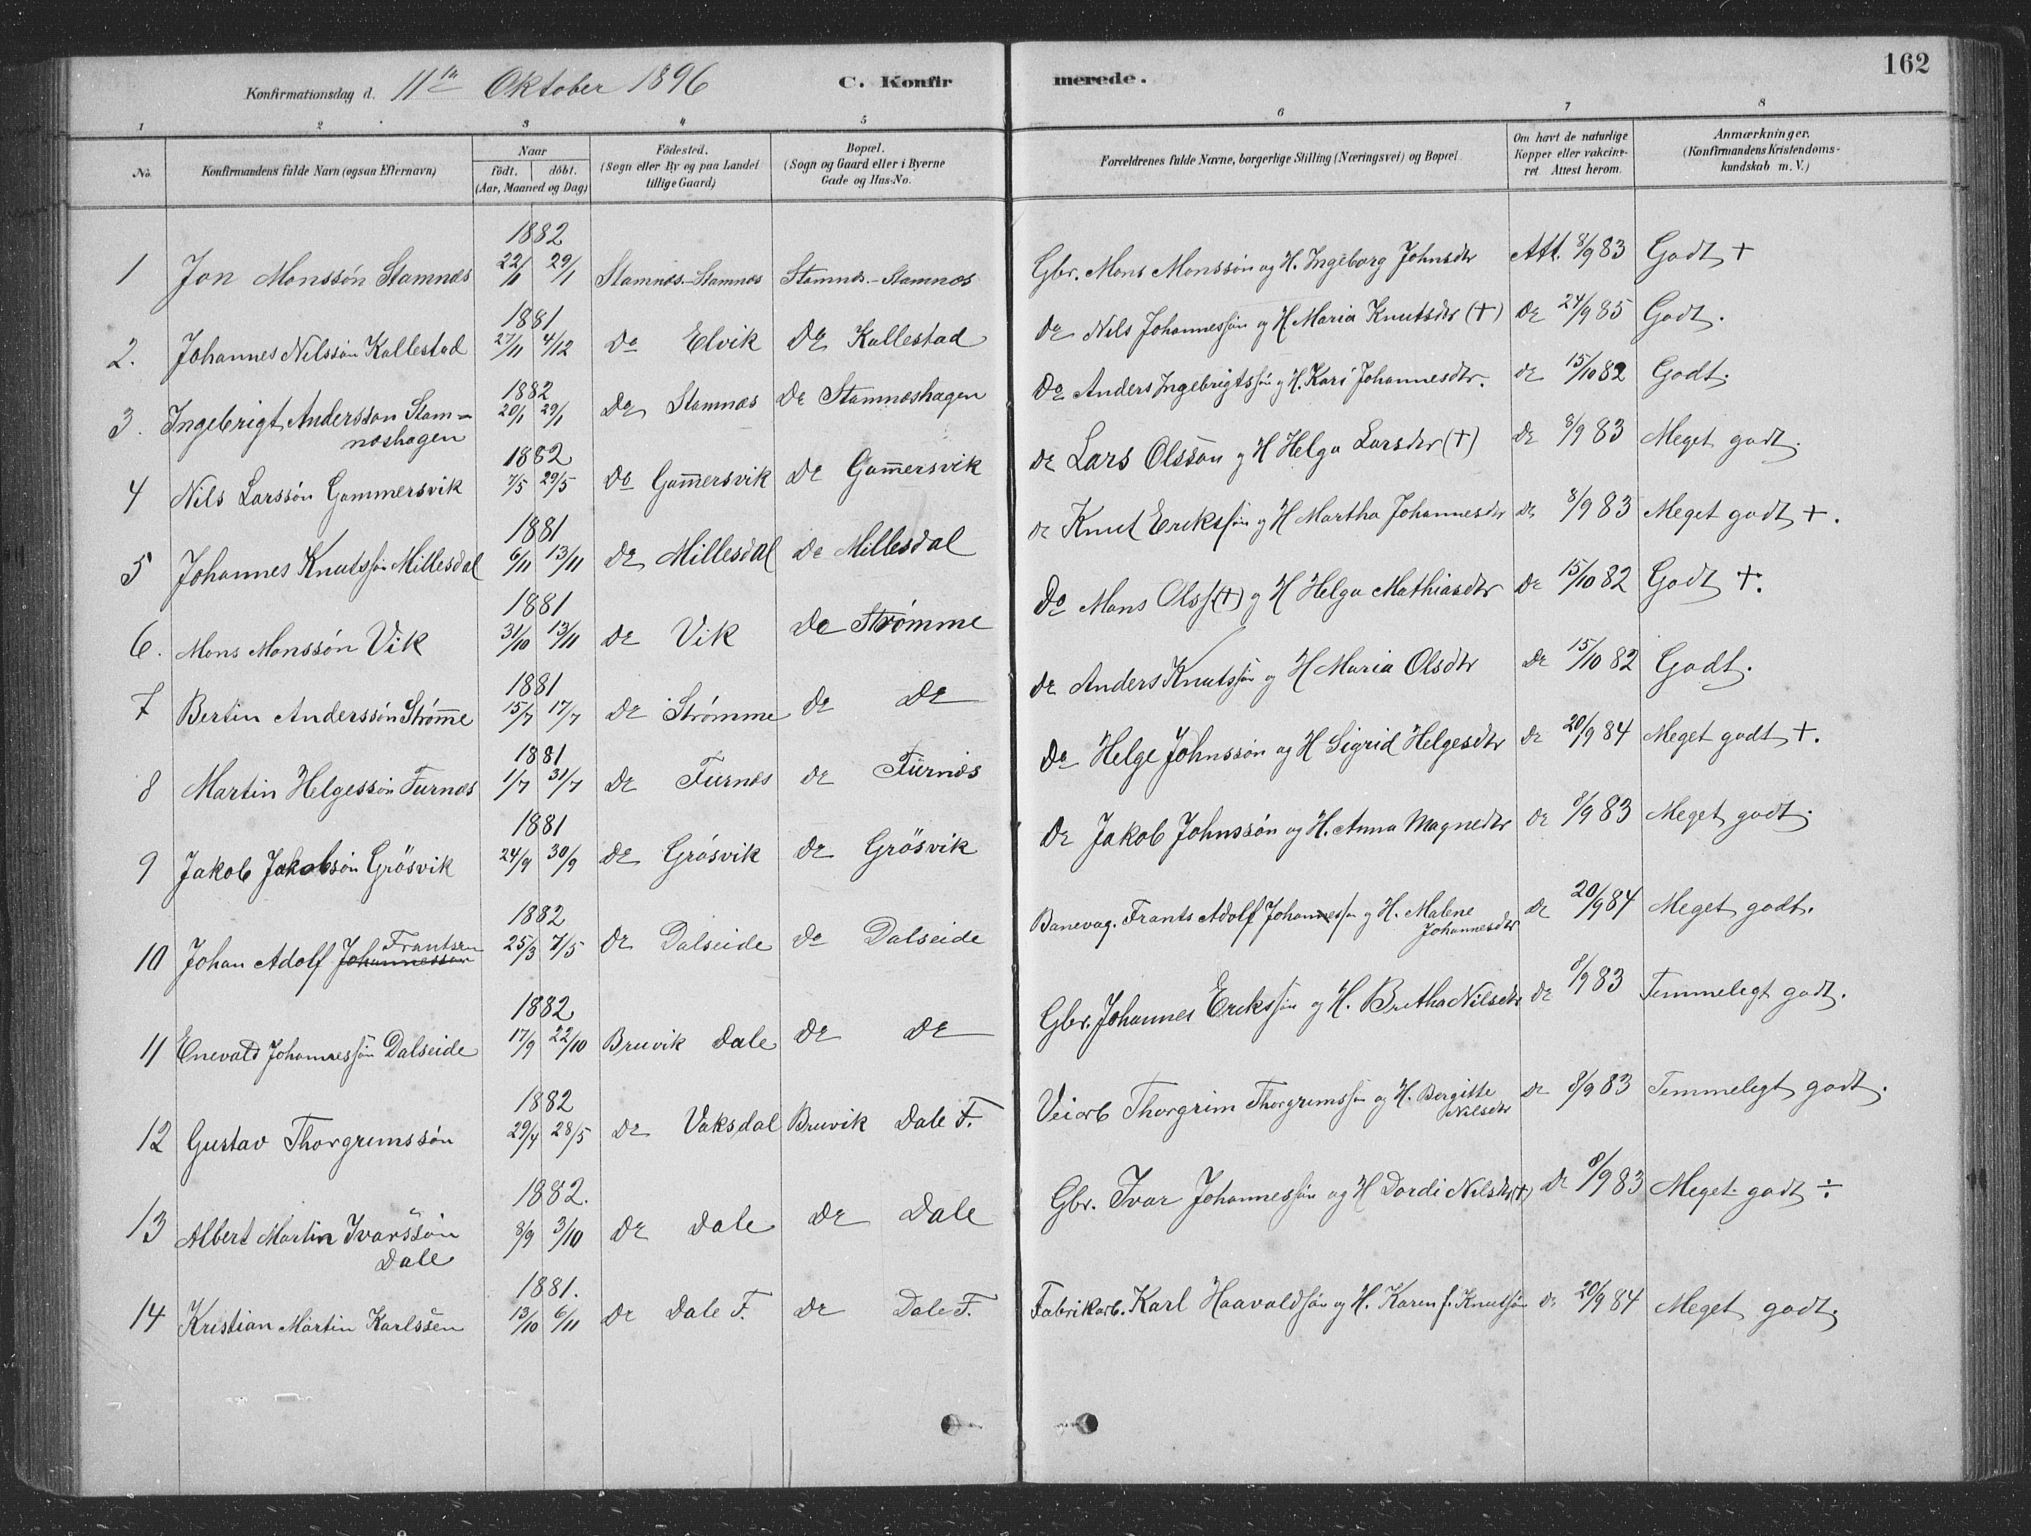 162
Konfirmationsdag d. 11te Oktober 1896 C. Konfirmerede.
1 2 3 4 5 6 7 8
No. Konfirmandens fulde Navn (ogsaa Efternavn) Naar födt. döbt. (Aar, Maaned og Dag) Födested. (Sogn eller By og paa Landet tillige Gaard) Bopæl. (Sogn og Gaard eller i Byerne Gade og Hus-No. Forældrenes fulde Navne, borgerlige Stilling (Næringsvei) og Bopæl. Om havt de naturlige Kopper eller vakcineret. Attest herom. Anmærkninger. (Konfirmandens Kristendomskundskab m. V.)
1882
1 Jon Monssön Stamnæs 22/1 29/1 Stamnæs-Stamnæs Stamnæs-Stamnæs Gbr. Mons Monssön og H. Ingeborg Johnsdtr Att. 8/9 83 Godt +
1881
2. Johannes Nilssön Kallestad 27/11 4/12 do Elvik do Kallestad do Nils Johannessön og H Maria Knutsdtr (+) do 24/9 85 Godt.
1882
3. Ingebrigt Anderssøn Stam-
næshagen 20/1 29/1 do Stamnæs do Stamnæshagen do Anders Ingebrigtssön og H. Kari Johannesdtr. do 15/10 82 Godt.
1882
4 Nils Larssön Gammersvik 7/5 29/5 do Gam̄ersvik do Gam̄ersvik do Lars Olssön og H Helga Larsdtr (+) do 8/9 83 Meget godt.
1881
5 Johannes Knutssön Millesdal 6/11 13/11 do Millesdal do Millesdal do Knut Erikssön og H Martha Johannesdtr do 8/9 83 Meget godt +.
1881
6. Mons Monssön Vik 31/10 13/11 do Vik do Strømme do Mons Olss (+) og H Helga Mathiasdtr do 15/10 82 Godt +.
1881
7 Bertin Anderssön Strøm̄e 15/7 17/7 do Strömme do do do Anders Knutssön og H Maria Olsdtr do 15/10 82 Godt.
1881
8 Martin Helgessön Furnæs 1/7 31/7 do Furnæs do Furnæs do Helge Johnssön og H Sigrid Helgesdtr do 20/9 84 Meget godt +.
1881
9 Jakob Jakobssön Grösvik 24/9 30/9 do Grösvik do Grösvik do Jakob Johnssön og H. Anna Magnedtr do 8/9 83 Meget godt.
1882
10 Johan Adolf Johannessøn Frantsen 25/3 7/5 do Dalseide do Dalseide Banevag. Frants Adolf Johannessn og H. Malene Johannesdtr do 20/9 84 Meget godt.
1882
11 Enevald Johannessön Dalseide 17/9 22/10 Bruvik Dale do do Gbr. Johannes Erikssön og H. Britha Nilsdtr do 8/9 83 Temmeligt godt.
1882
12 Gustav Thorgrimssön 29/4 28/5 do Vaksdal Bruvik Dale F. Veiarb Thorgrim Thorgrimssön og H. Bergitte Nilsdtr do 8/9 83 Temmeligt godt.
1882.
13 Albert Martin Ivarssön
Dale 8/9 3/10 do Dale do Dale Gbr. Ivar Johannessön og H Dordi Nilsdtr (+) do 8/9 83 Meget godt ÷
1881.
14 Kristian Martin Karlssen 13/10 6/11 do Dale F. do Dale F. Fabrikarb. Karl Haavaldsön og H. Karen f. Knutsön do 20/9 84 Meget godt.